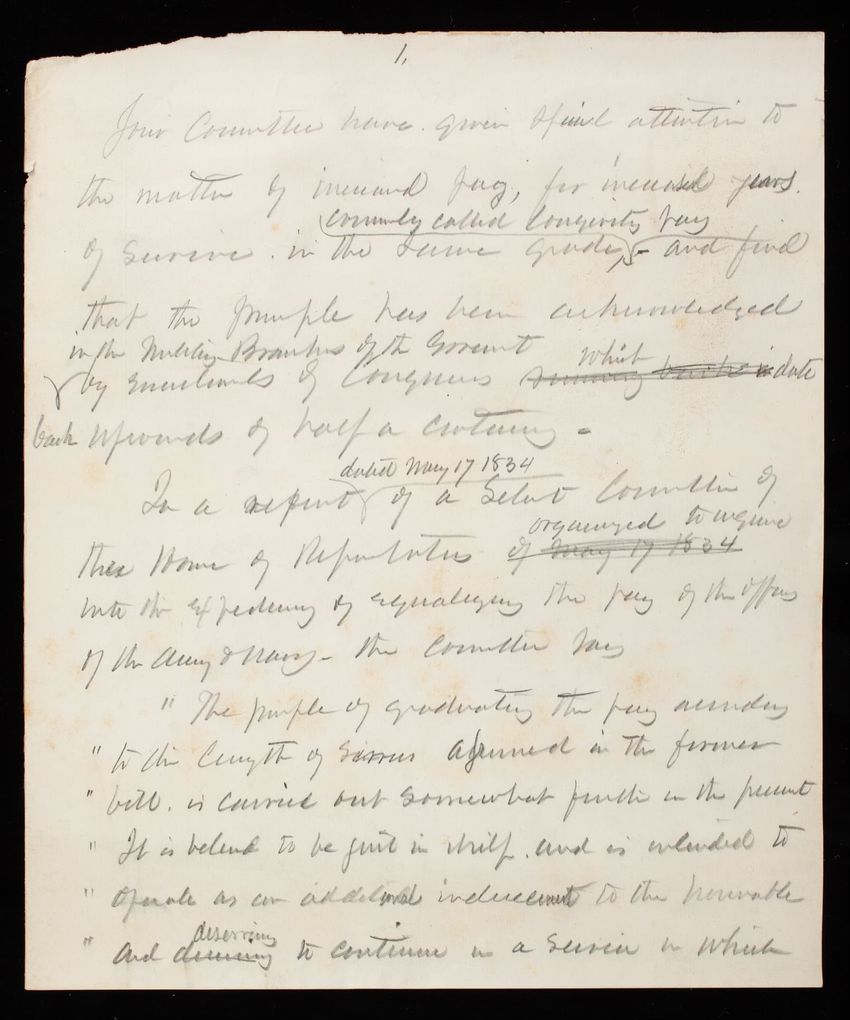 1.
Your Committee have given special attention to
the matter of increased pay, for increased years.
commonly called longevity pay
of service. in the same grade, - and find
that the principle has been acknowledged
in the Military Branches of the Government
by enactments of Congress which date
back upwards of half a century -
dated May 17 1834
In a report of a Select Committee of
organized to inquire
the House of Representatives of May 17 1834
into the expediency of equalizing the pay of the officers
of the Army & Navy - the Committee says
" The principle of graduating the pay according
" to the length of service assumed in the former
" bill. is carried out somewhat further in the present
" It is believed to be just in itself. and is intended to
" operate as an additional inducement to the honorable
deserving
" and to continue in a service in which